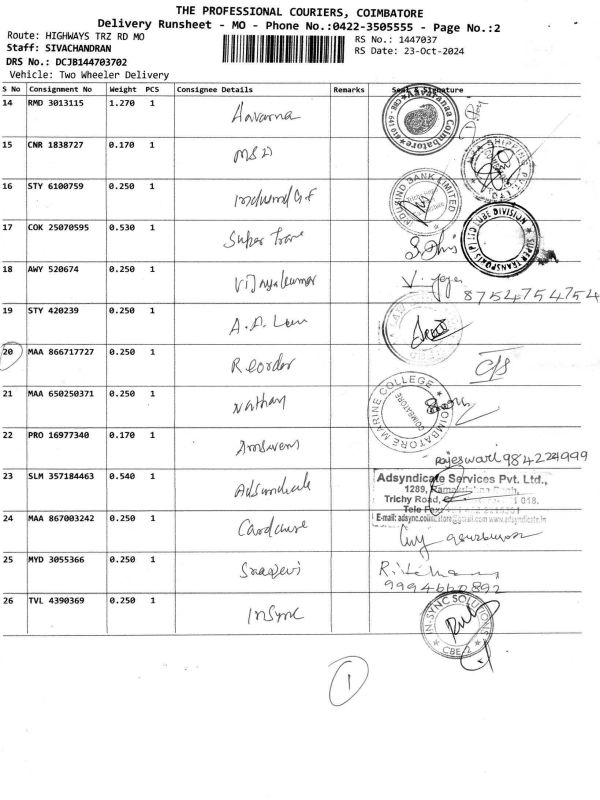 THE PROFESSIONAL COURIERS, COIMBATORE
Delivery Runsheet - MO - Phone No.:0422-3505555 - Page No.:2
Route: HIGHWAYS TRZ RD MO
RS No.: 1447037
Staff: SIVACHANDRAN
RS Date: 23-Oct-2024
DRS No.: DCJB144703702
Vehicle: Two Wheeler Delivery
S No Consignment No Weight PCS Consignee Details Remarks Seal & Signature
14 RMD 3013115 1.270 1
15 CNR 1838727 0.170 1 MSD
16 STY 6100759 0.250 1
INDUSIND BANK LIMITED
17 COK 25070595 0.530 1 Super Trans
SUPER TRANSPORTS (P) LTD
18 AWY 520674 0.250 1 Vijayakumar
8754754754
19 STY 420239 0.250 1 A.P. Law
20 MAA 866717727 0.250 1 Reorder
21 MAA 650250371 0.250 1 Nathan
COIMBATORE MARINE COLLEGE
COIMBATORE
22 PRO 16977340 0.170 1
Rajeswari 984224999
23 SLM 357184463 0.540 1 Adsyndicate
Adsyndicate Services Pvt. Ltd.,
1289,
Trichy Road, 018.
Tele Fax
E-mail: adsync.coimbatore@gmail.com www.adsyndicate.in
24 MAA 867003242 0.250 1
25 MYD 3055366 0.250 1
9994660892
26 TVL 4390369 0.250 1 Insync
IN-SYNC SOLUTIONS
CBE-2
1